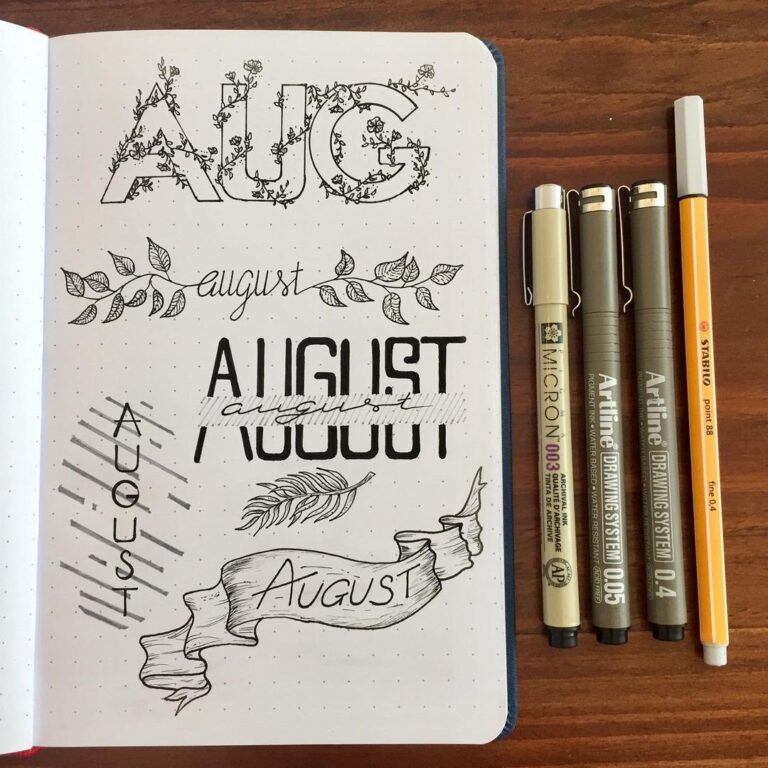 AUG
august
AUGUST
august
AUGUST
AUGUST
PIGMA
MICRON 003
ARCHIVAL INK
QUALITÉ D'ARCHIVAGE
TINTA DE ARCHIVE
AP
Artline®
DRAWING SYSTEM 0.05
PIGMENT INK • WATER BASED • WATER RESISTANT
Artline®
DRAWING SYSTEM 0.4
STABILO
point 88
fine 0,4